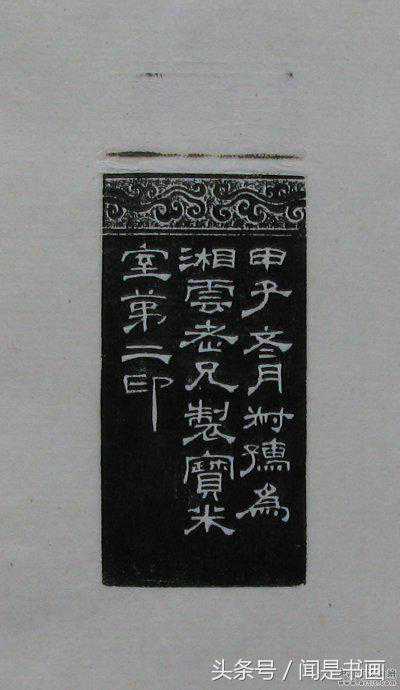 甲子冬月叔孺為
湘雲老兄製寶米
室第二印
头条号 / 闻是书画